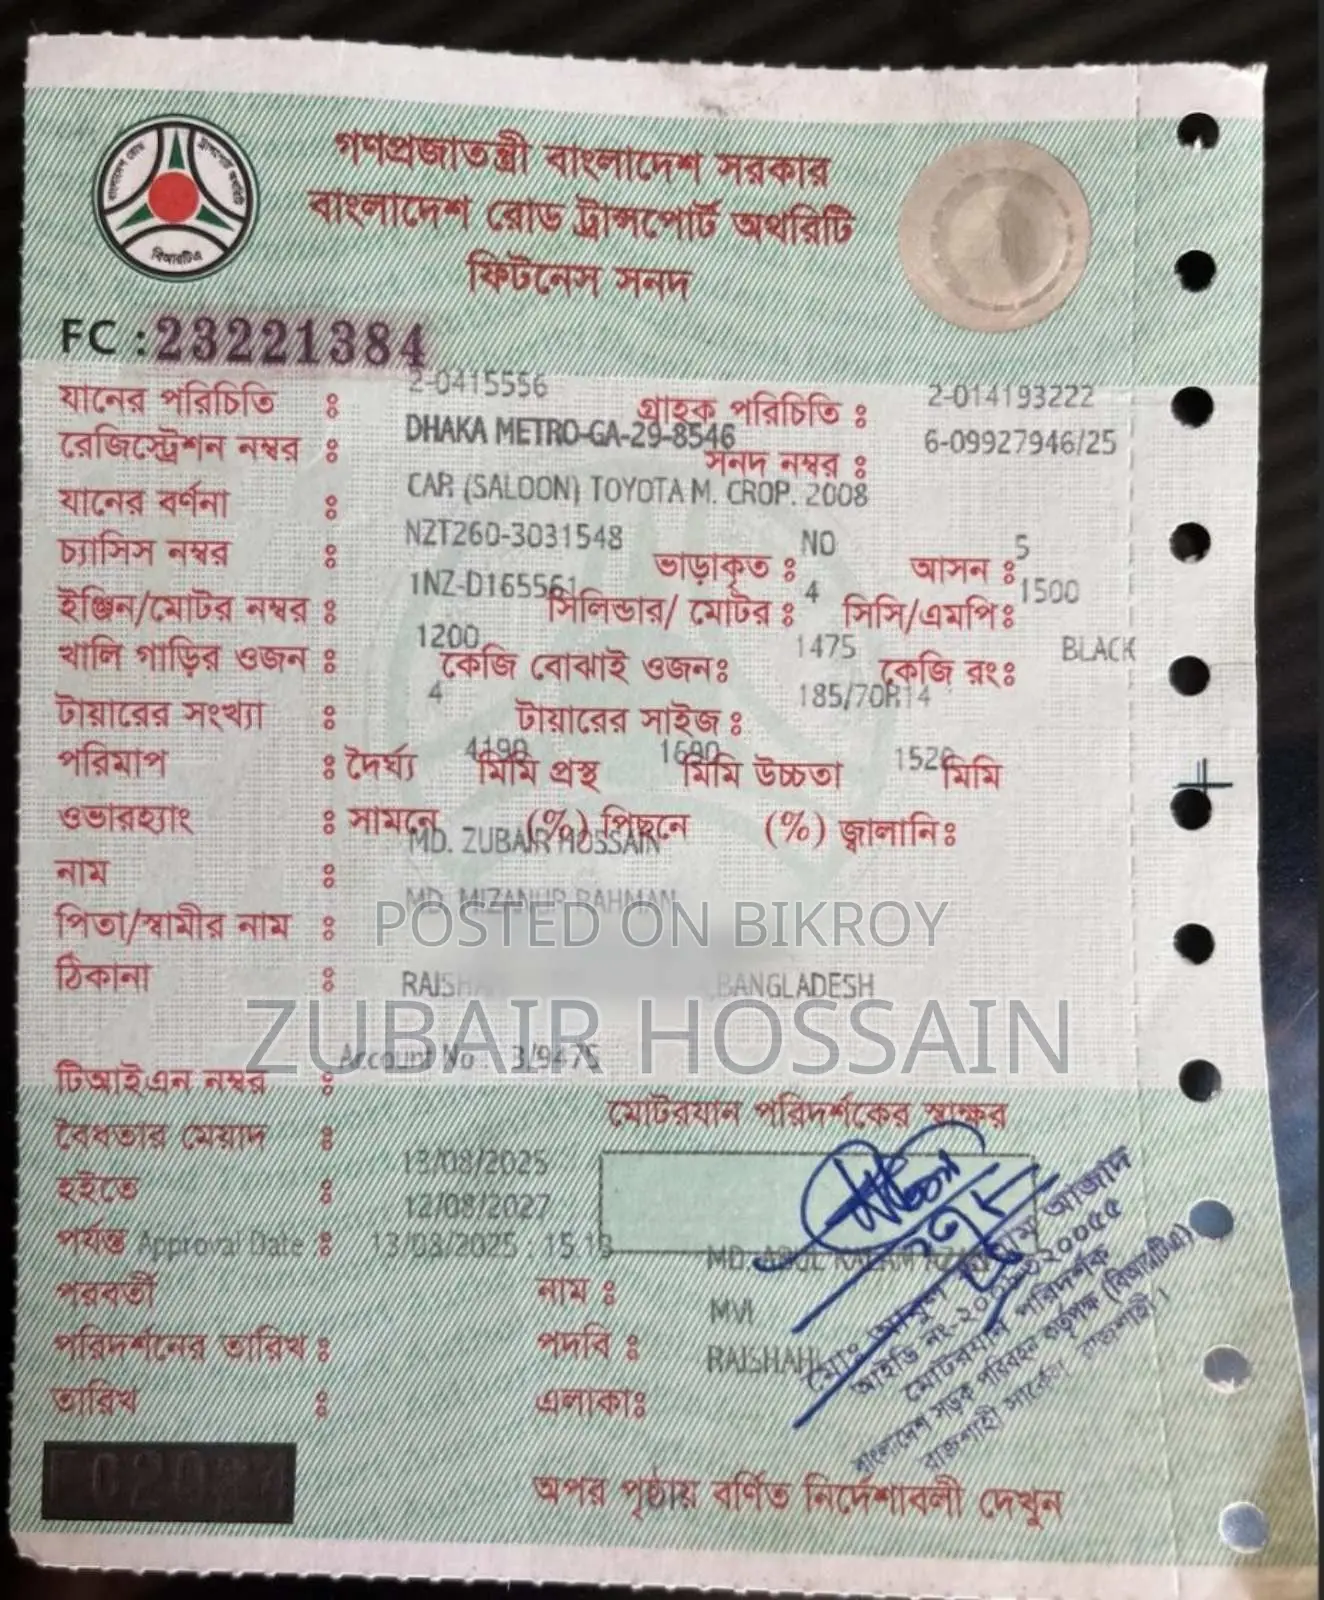 গণপ্রজাতন্ত্রী বাংলাদেশ সরকার
বাংলাদেশ রোড ট্রান্সপোর্ট অথরিটি
বিআরটিএ
ফিটনেস সনদ
FC : 23221384
যানের পরিচিতি : 2-0415556 গ্রাহক পরিচিতি : 2-014193222
রেজিস্ট্রেশন নম্বর : DHAKA METRO-GA-29-8546 সনদ নম্বর : 6-09927946/25
যানের বর্ণনা : CAR (SALOON) TOYOTA M. CROP. 2008
চ্যাসিস নম্বর : NZT260-3031548 ভাড়াকৃত : NO আসন : 5
ইঞ্জিন/মোটর নম্বর : 1NZ-D165561 সিলিন্ডার/ মোটর : 4 সিসি/এমপি : 1500
খালি গাড়ির ওজন : 1200 কেজি বোঝাই ওজন : 1475 কেজি রং : BLACK
টায়ারের সংখ্যা : 4 টায়ারের সাইজ : 185/70R14
পরিমাপ : দৈর্ঘ্য 4190 মিমি প্রস্থ 1690 মিমি উচ্চতা 1520 মিমি
ওভারহ্যাং : সামনে (%) পিছনে (%) জ্বালানি :
নাম : MD. ZUBAIR HOSSAIN
পিতা/স্বামীর নাম : MD. MIZANUR RAHMAN
POSTED ON BIKROY
ঠিকানা : RAJSHA BANGLADESH
ZUBAIR HOSSAIN
টিআইএন নম্বর : Account No : 3/9475
মোটরযান পরিদর্শকের স্বাক্ষর
বৈধতার মেয়াদ :
হইতে : 13/08/2025
পর্যন্ত : 12/08/2027
Approval Date : 13/08/2025 : 15.13
পরবর্তী
পরিদর্শনের তারিখ :
তারিখ :
নাম : MD. ABUL KALAM AZAD
পদবি : MVI
এলাকা : RAJSHAHI
মোঃ আবুল কালাম আজাদ
মোটরযান পরিদর্শক
বাংলাদেশ সড়ক পরিবহন কর্তৃপক্ষ (বিআরটিএ)
রাজশাহী সার্কেল, রাজশাহী।
অপর পৃষ্ঠায় বর্ণিত নির্দেশাবলী দেখুন